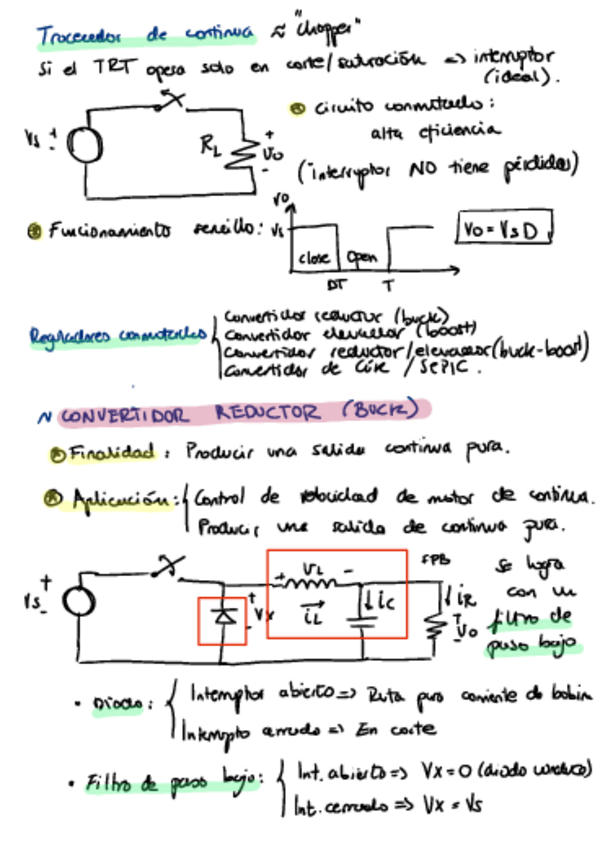 Troceador de continua ≈ "chopper"
Si el TRT opera solo en corte/saturación => interruptor
(ideal).
Circuito conmutado:
alta eficiencia
("interruptor NO tiene pérdidas)
Vs + -
RL
+ Vo -
Funcionamiento sencillo:
Vo
Vs
close open
DT T
Vo = Vs D
Reguladores conmutados
Convertidor reductor (buck)
Convertidor elevador (boost)
Convertidor reductor/elevador (buck-boost)
Convertidor de Cúk / SEPIC.
~ CONVERTIDOR REDUCTOR (BUCK)
Finalidad: Producir una salida continua pura.
Aplicación: Control de velocidad de motor de continua.
Producir una salida de continua pura.
Vs + -
+ Vx -
+ VL -
iL
iC
FPB
iR
+ Vo -
se logra
con un
filtro de
paso bajo
• Diodo: Interruptor abierto => Ruta para corriente de bobina
Interrupto cerrado => En corte
• Filtro de paso bajo: Int. abierto => Vx = 0 (diodo conduce)
Int. cerrado => Vx = Vs